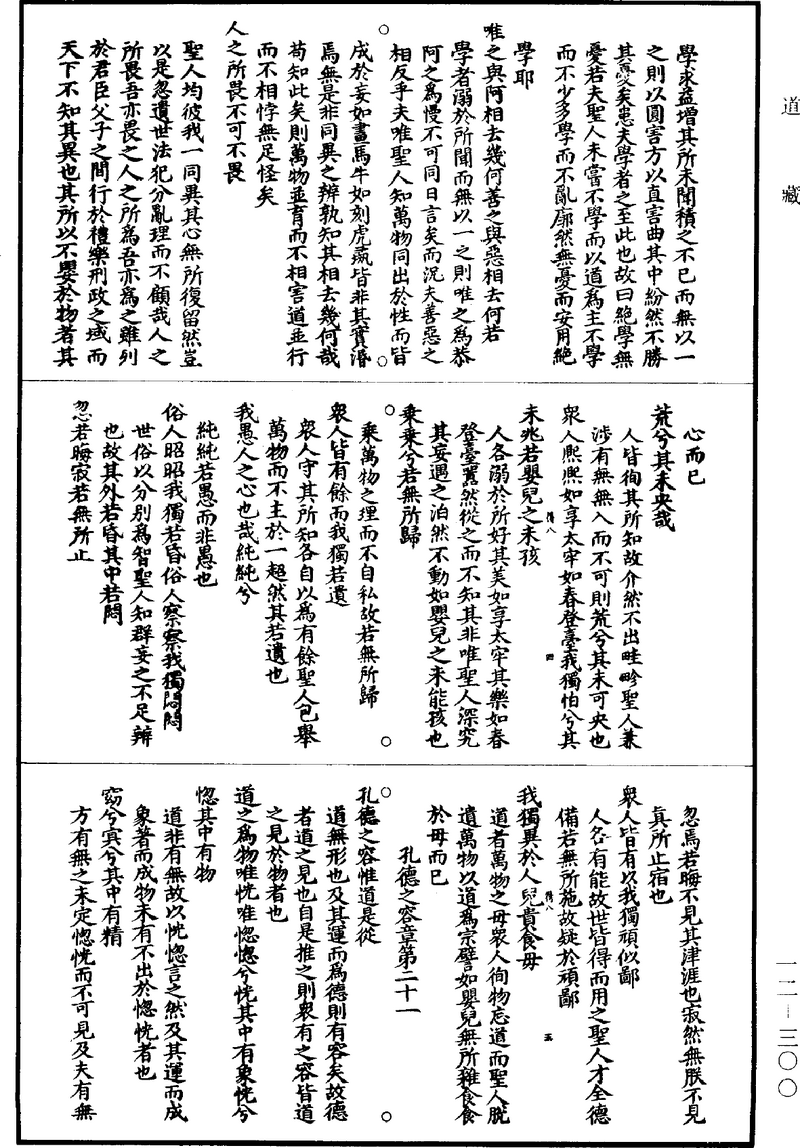 道藏
學求益增其所未聞積之不已而無以一
之則以圓害方以直害曲其中紛然不勝
其憂矣患夫學者之至此也故曰絕學無
憂若夫聖人未嘗不學而以道為主不學
而不少多學而不亂廓然無憂而安用絕
學耶
唯之與阿相去幾何善之與惡相去何若
學者溺於所聞而無以一之則唯之為恭
阿之為慢不可同日言矣而況夫善惡之
相反乎夫唯聖人知萬物同出於性而皆
成於妄如畫馬牛如刻虎彘皆非其實湣
焉無是非同異之辨孰知其相去幾何哉
苟知此矣則萬物並育而不相害道並行
而不相悖無足怪矣
人之所畏不可不畏
聖人均彼我一同異其心無所復留然豈
以是忽遺世法犯分亂理而不顧哉人之
所畏吾亦畏之人之所為吾亦為之雖列
於君臣父子之間行於禮樂刑政之域而
天下不知其異也其所以不嬰於物者其
心而已
荒兮其未央哉
人皆徇其所知故介然不出畦畛聖人兼
涉有無無入而不可則荒兮其未可央也
衆人熙熙如享太牢如春登臺我獨怕兮其
未兆若嬰兒之未孩
人各溺於所好其美如享太牢其樂如春
登臺囂然從之而不知其非唯聖人深究
其妄遇之泊然不動如嬰兒之未能孩也
乘乘兮若無所歸
乘萬物之理而不自私故若無所歸
衆人皆有餘而我獨若遺
衆人守其所知各自以為有餘聖人包舉
萬物而不主於一超然其若遺也
我愚人之心也哉純純兮
純純若愚而非愚也
俗人昭昭我獨若昏俗人察察我獨悶悶
世俗以分別為智聖人知群妄之不足辨
也故其外若昏其中若悶
忽若晦寂若無所止
忽焉若晦不見其津涯也寂然無朕不見
真所止宿也
衆人皆有以我獨頑似鄙
人各有能故世皆得而用之聖人才全德
備若無所施故疑於頑鄙
我獨異於人兒貴食母
道者萬物之母衆人徇物忘道而聖人脫
遺萬物以道為宗譬如嬰兒無所雜食食
於母而已
孔德之容章第二十一
孔德之容惟道是從
道無形也及其運而為德則有容矣故德
者道之見也自是推之則衆有之容皆道
之見於物者也
道之為物唯恍唯惚惚兮恍其中有象恍兮
惚其中有物
道非有無故以恍惚言之然及其運而成
象著而成物未有不出於惚恍者也
窈兮冥兮其中有精
方有無之未定惚恍而不可見及夫有無
一二－三〇〇